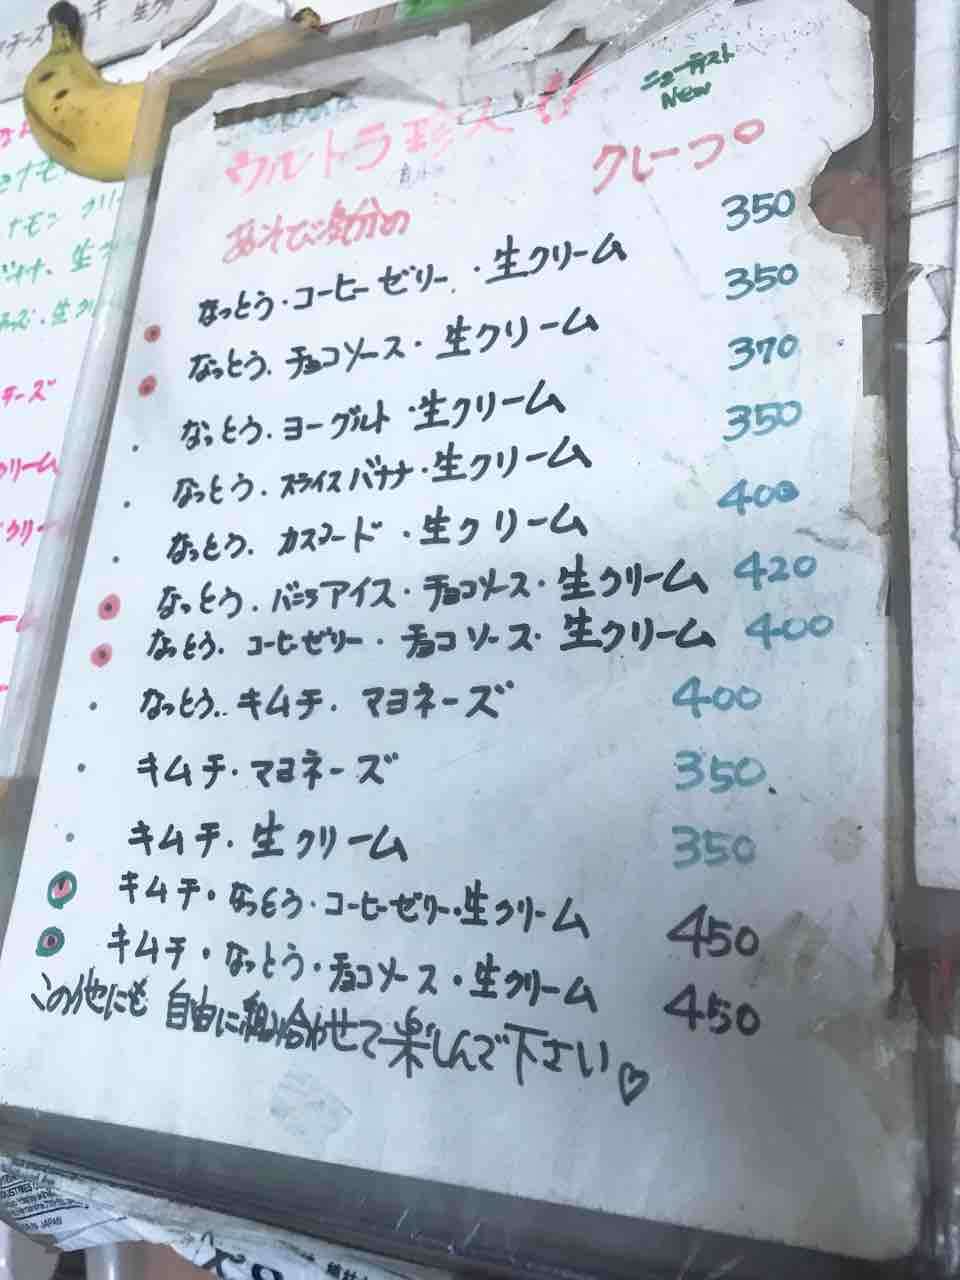 ニューテスト
New
ウルトラ珍メ!!
クレープ
あそび気分の
なっとう・コーヒーゼリー・生クリーム 350
なっとう.チョコソース・生クリーム 350
なっとう.ヨーグルト・生クリーム 370
なっとう.スライスバナナ・生クリーム 350
なっとう.カスタード・生クリーム 400
なっとう.バニラアイス・チョコソース・生クリーム 420
なっとう.コーヒーゼリー・チョコソース・生クリーム 400
なっとう..キムチ.マヨネーズ 400
キムチ・マヨネーズ 350
キムチ・生クリーム 350
キムチ・なっとう・コーヒーゼリー・生クリーム 450
キムチ・なっとう・チョコソース・生クリーム 450
この他にも自由に組み合わせて楽しんで下さい♡